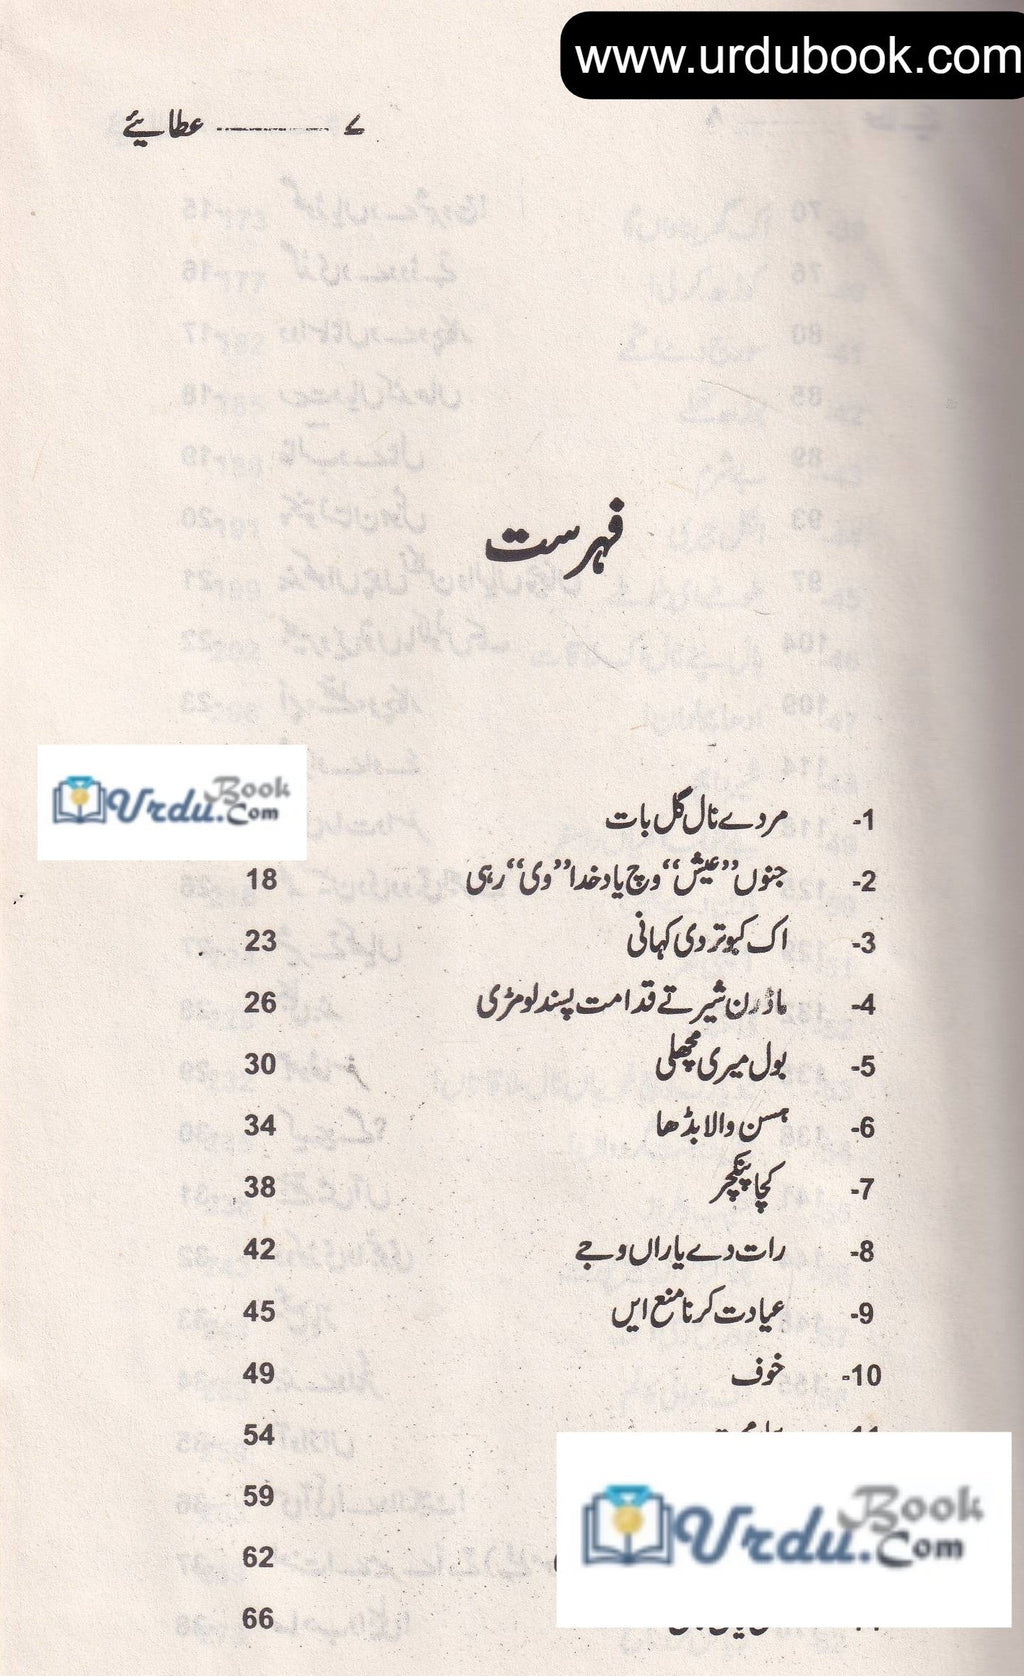 www.urdubook.com
۷ ---------- عطایئے
فہرست
1- مرد دے نال گل بات
2- جنوں ”عیش“ وچ یاد خدا ”وی“ رہی 18
3- اک کبوتر دی کہانی 23
4- ماڈرن شیر تے قدامت پسند لومڑی 26
5- بول میری مچھلی 30
6- ہسن والا بڈھا 34
7- کچا پنکچر 38
8- رات دے یاراں وجے 42
9- عیادت کرنا منع ایں 45
10- خوف 49
54
59
62
66
Urdu Book .Com
Urdu Book .Com